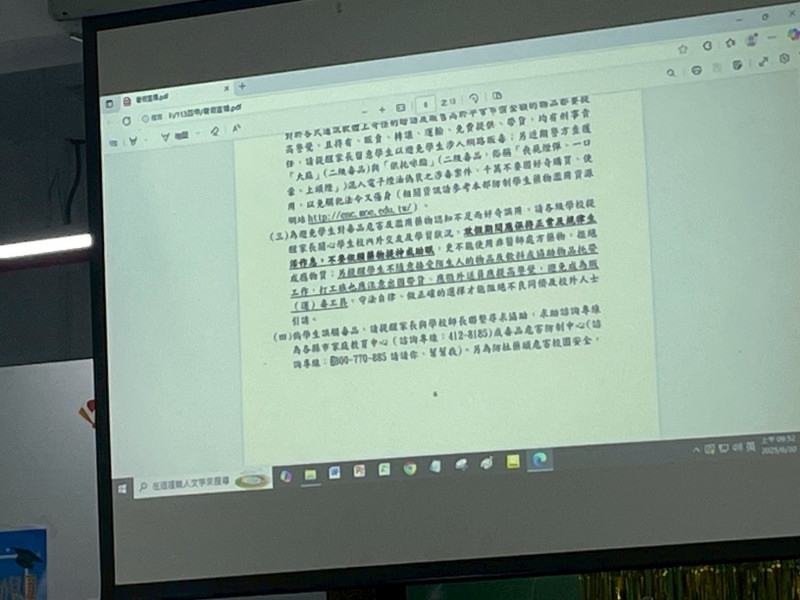 暑假宣導.pdf
/113四申/暑假宣導.pdf
6
之 13
對於各式通訊軟體上可任的贈送或販售高於平常市價金額的物品都要提
高警覺，且持有、販賣、轉讓、運輸、免費提供、帶貨，均有刑事責
任，請提醒家長留意學生以避免學生涉入網路販毒；另近期警方查獲
「大麻」(二級毒品)與「依托咪酯」(二級毒品，俗稱「喪屍煙彈、一口
暈、上頭煙」)混入電子煙油偽裝之涉毒案件，千萬不要因好奇購買、使
用，以免觸犯法令又傷身（相關資訊請參考本部防制學生藥物濫用資源
網站 http://enc.moe.edu.tw/）。
(三)為避免學生對毒品危害及濫用藥物認知不足而好奇誤用，請各級學校提
醒家長關心學生校內外交友及學習狀況，於假期間應保持正常及規律生
活作息，不要依賴藥物提神或助眠，更不能使用非醫師處方藥物，拒絕
成癮物質；另提醒學生不隨意接受陌生人的物品及飲料或協助物品托帶
工作，打工族也應注意出國帶貨、應徵外送員應提高警覺，避免成為販
(運)毒工具，守法自律、做正確的選擇才能阻絕不良同儕及校外人士
引誘。
(四)倘學生誤觸毒品，請提醒家長與學校師長聯繫尋求協助，求助諮詢專線
為各縣市家庭教育中心（諮詢專線：412-8185)或毒品危害防制中心(諮
詢專線：0800-770-885 請請你、幫幫我)。另為防杜藥頭危害校園安全，
6
在這裡輸入文字來搜尋
英
上午 09:52
2025/6/30